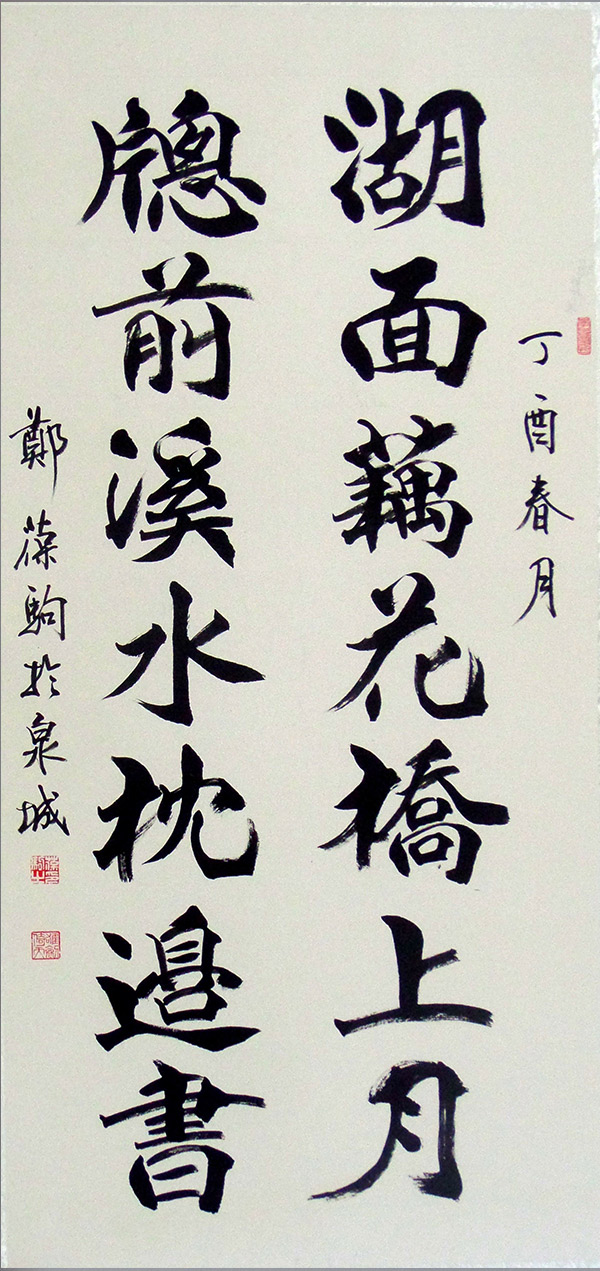 丁酉春月
湖面藕花橋上月
牕前溪水枕邊書
鄭葆駒於泉城